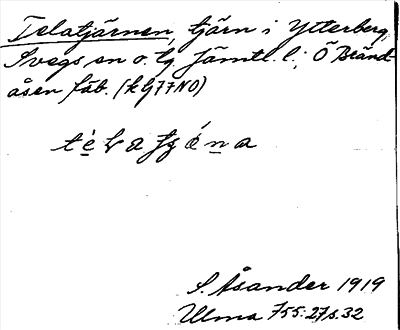 Telatjärnen, tjärn i Ytterberg,
Svegs sn o. tg. Jämtl. l.; Ö Bränd-
åsen fäb. (k bl 77 NO)
S. Åsander 1919
Ulma 755:27 s. 32